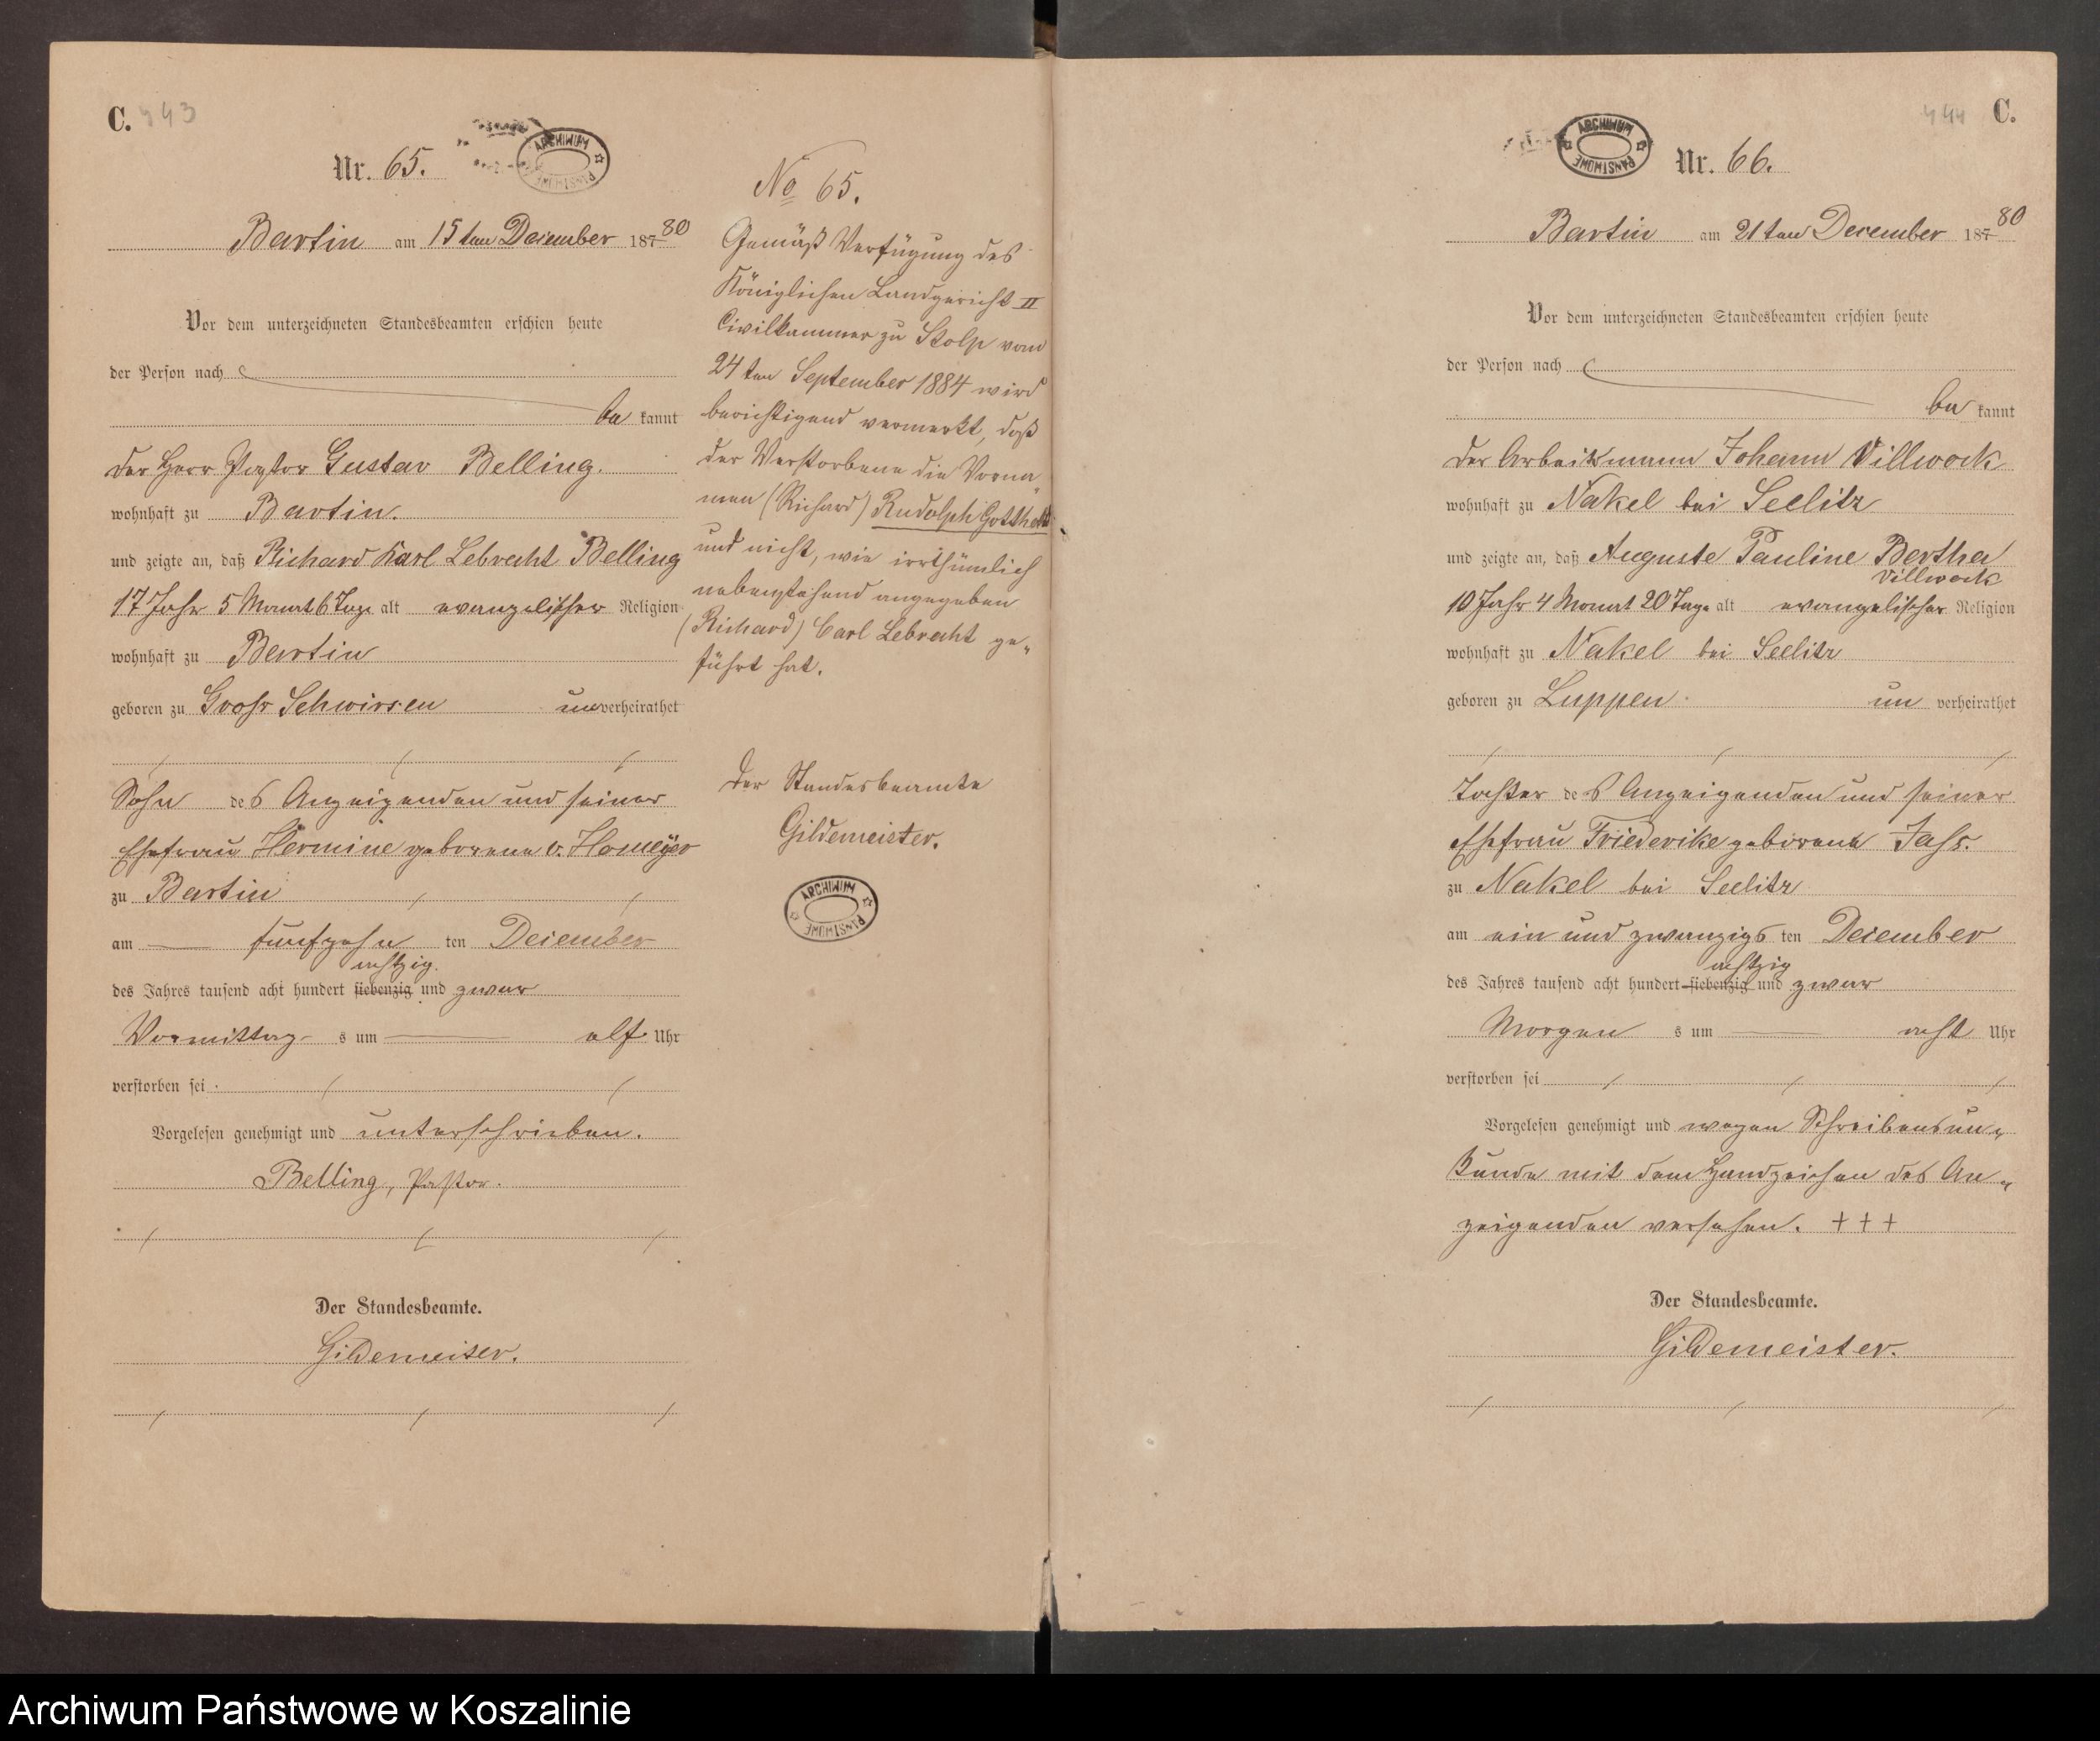 C. 443
Nr. 65.
ARCHIWUM PAŃSTWOWE
Bartin am 15ten December 187 80
Vor dem unterzeichneten Standesbeamten erschien heute
der Person nach
be kannt
der Herr Pastor Gustav Belling.
wohnhaft zu Bartin.
und zeigte an, daß Richard Karl Lebrecht Belling
17 Jahr 5 Monat 6 Tage alt evangelischer Religion
wohnhaft zu Bartin
geboren zu Groß Schwirsen unverheirathet
Sohn des Anzeigenden und seiner
Ehefrau Hermine geborene v. Homeyer
zu Bartin
am fünfzehn ten December
achtzig.
des Jahres tausend acht hundert siebenzig und zwar
Vormittag s um elf Uhr
verstorben sei
Vorgelesen genehmigt und unterschrieben.
Belling, Pastor.
Der Standesbeamte.
Gildemeister.
No 65.
Gemäß Verfügung des
Königlichen Landgericht II
Civilkammer zu Stolp vom
24ten September 1884 wird
berichtigend vermerkt, daß
der Verstorbene die Vorna„
men (Richard) Rudolph Gotthelf
und nicht, wie irrthümlich
nebenstehend angegeben
(Richard) Carl Lebrecht ge„
führt hat.
Der Standesbeamte
Gildemeister.
ARCHIWUM PAŃSTWOWE
444 C.
ARCHIWUM PAŃSTWOWE
Nr. 66.
Bartin am 21ten December 187 80
Vor dem unterzeichneten Standesbeamten erschien heute
der Person nach
be kannt
der Arbeitsmann Johann Villwock
wohnhaft zu Nakel bei Seelitz
und zeigte an, daß Auguste Pauline Bertha
Villwock
10 Jahr 4 Monat 20 Tage alt evangelischer Religion
wohnhaft zu Nakel bei Seelitz
geboren zu Luppen un verheirathet
Tochter des Anzeigenden und seiner
Ehefrau Friederike geborene Jass.
zu Nakel bei Seelitz
am ein und zwanzigs ten December
achtzig
des Jahres tausend acht hundert siebenzig und zwar
Morgen s um acht Uhr
verstorben sei
Vorgelesen genehmigt und wegen Schreibensun„
kunde mit dem Handzeichen des An„
zeigenden versehen. + + +
Der Standesbeamte.
Gildemeister.
Archiwum Państwowe w Koszalinie